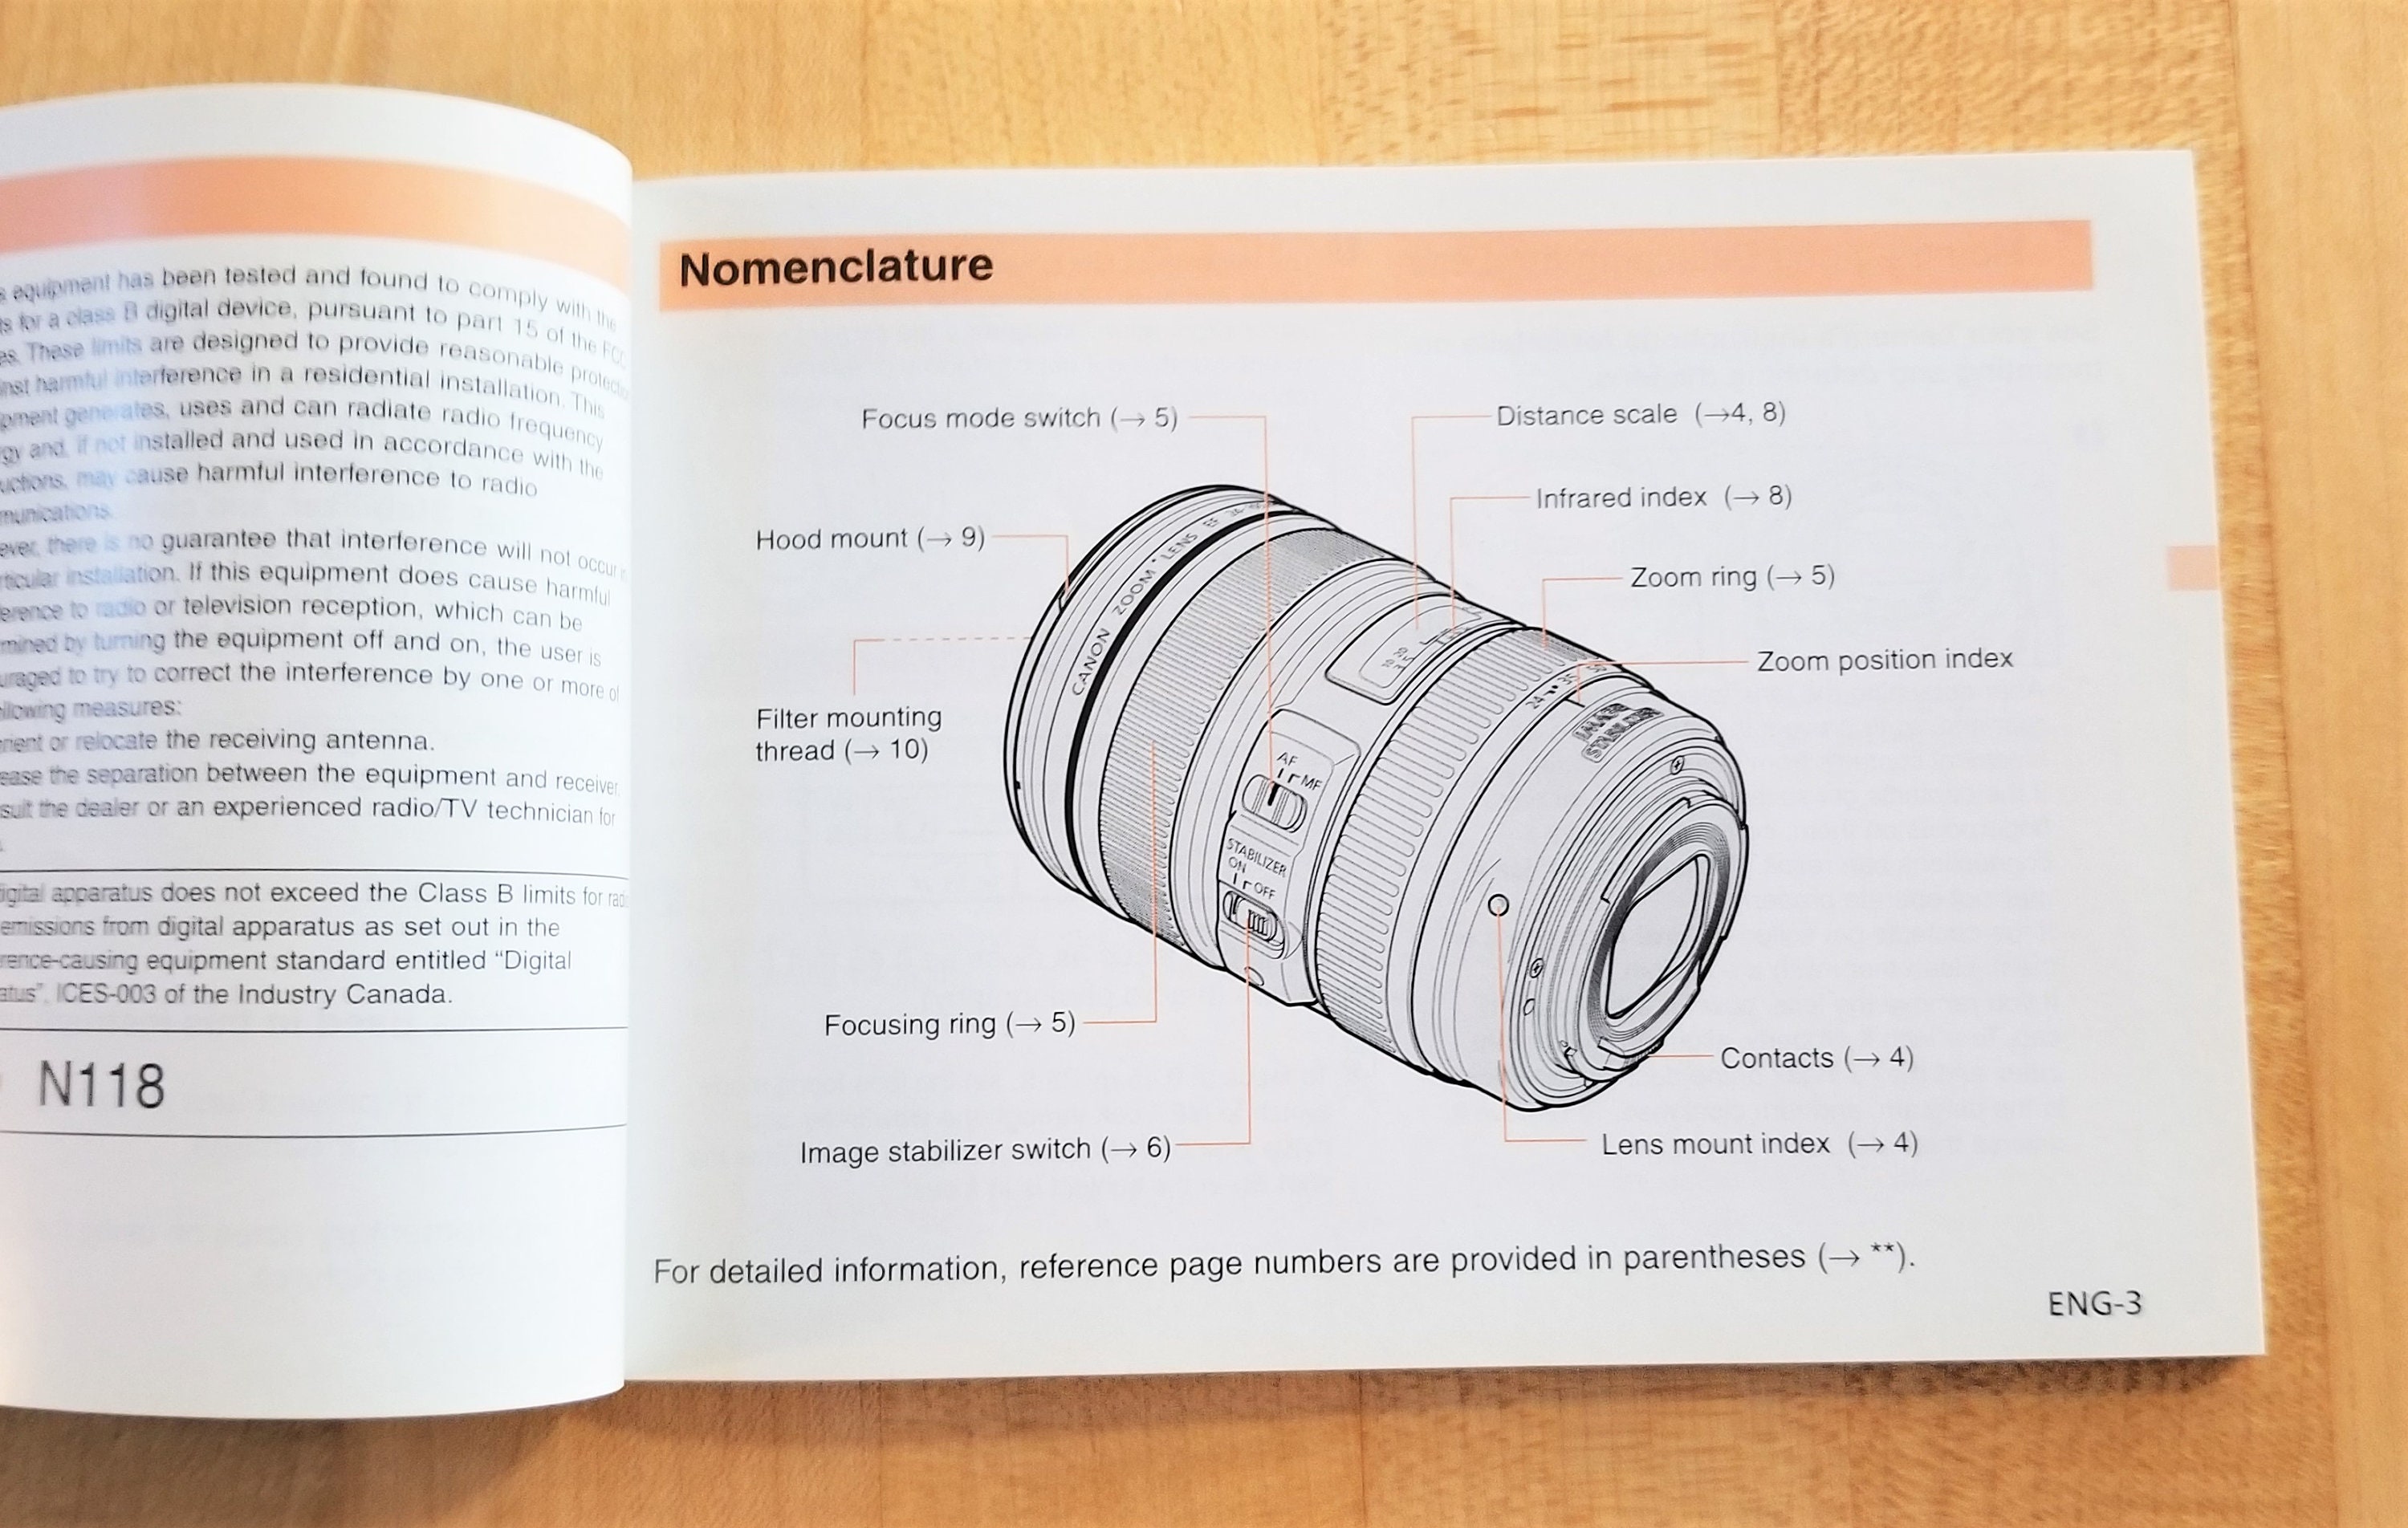 equipment has been tested and found to comply with the
for a class B digital device, pursuant to part 15 of the FCC
These limits are designed to provide reasonable
harmful interference in a residential installation. This
generates, uses and can radiate radio frequency
and, if not installed and used in accordance with the
may cause harmful interference to radio
there is no guarantee that interference will not occur
installation. If this equipment does cause harmful
to radio or television reception, which can be
by turning the equipment off and on, the user is
to try to correct the interference by one or more of
measures:
or relocate the receiving antenna.
the separation between the equipment and receiver.
the dealer or an experienced radio/TV technician for
apparatus does not exceed the Class B limits for
emissions from digital apparatus as set out in the
equipment standard entitled “Digital
ICES-003 of the Industry Canada.
N118
Nomenclature
Focus mode switch (→ 5)
Distance scale (→4, 8)
Infrared index (→ 8)
Hood mount (→ 9)
Zoom ring (→ 5)
Zoom position index
Filter mounting
thread (→ 10)
CANON ZOOM LENS EF
24 35 50
IMAGE
STABILIZER
AF MF
STABILIZER
ON OFF
Focusing ring (→ 5)
Contacts (→ 4)
Image stabilizer switch (→ 6)
Lens mount index (→ 4)
For detailed information, reference page numbers are provided in parentheses (→ **).
ENG-3